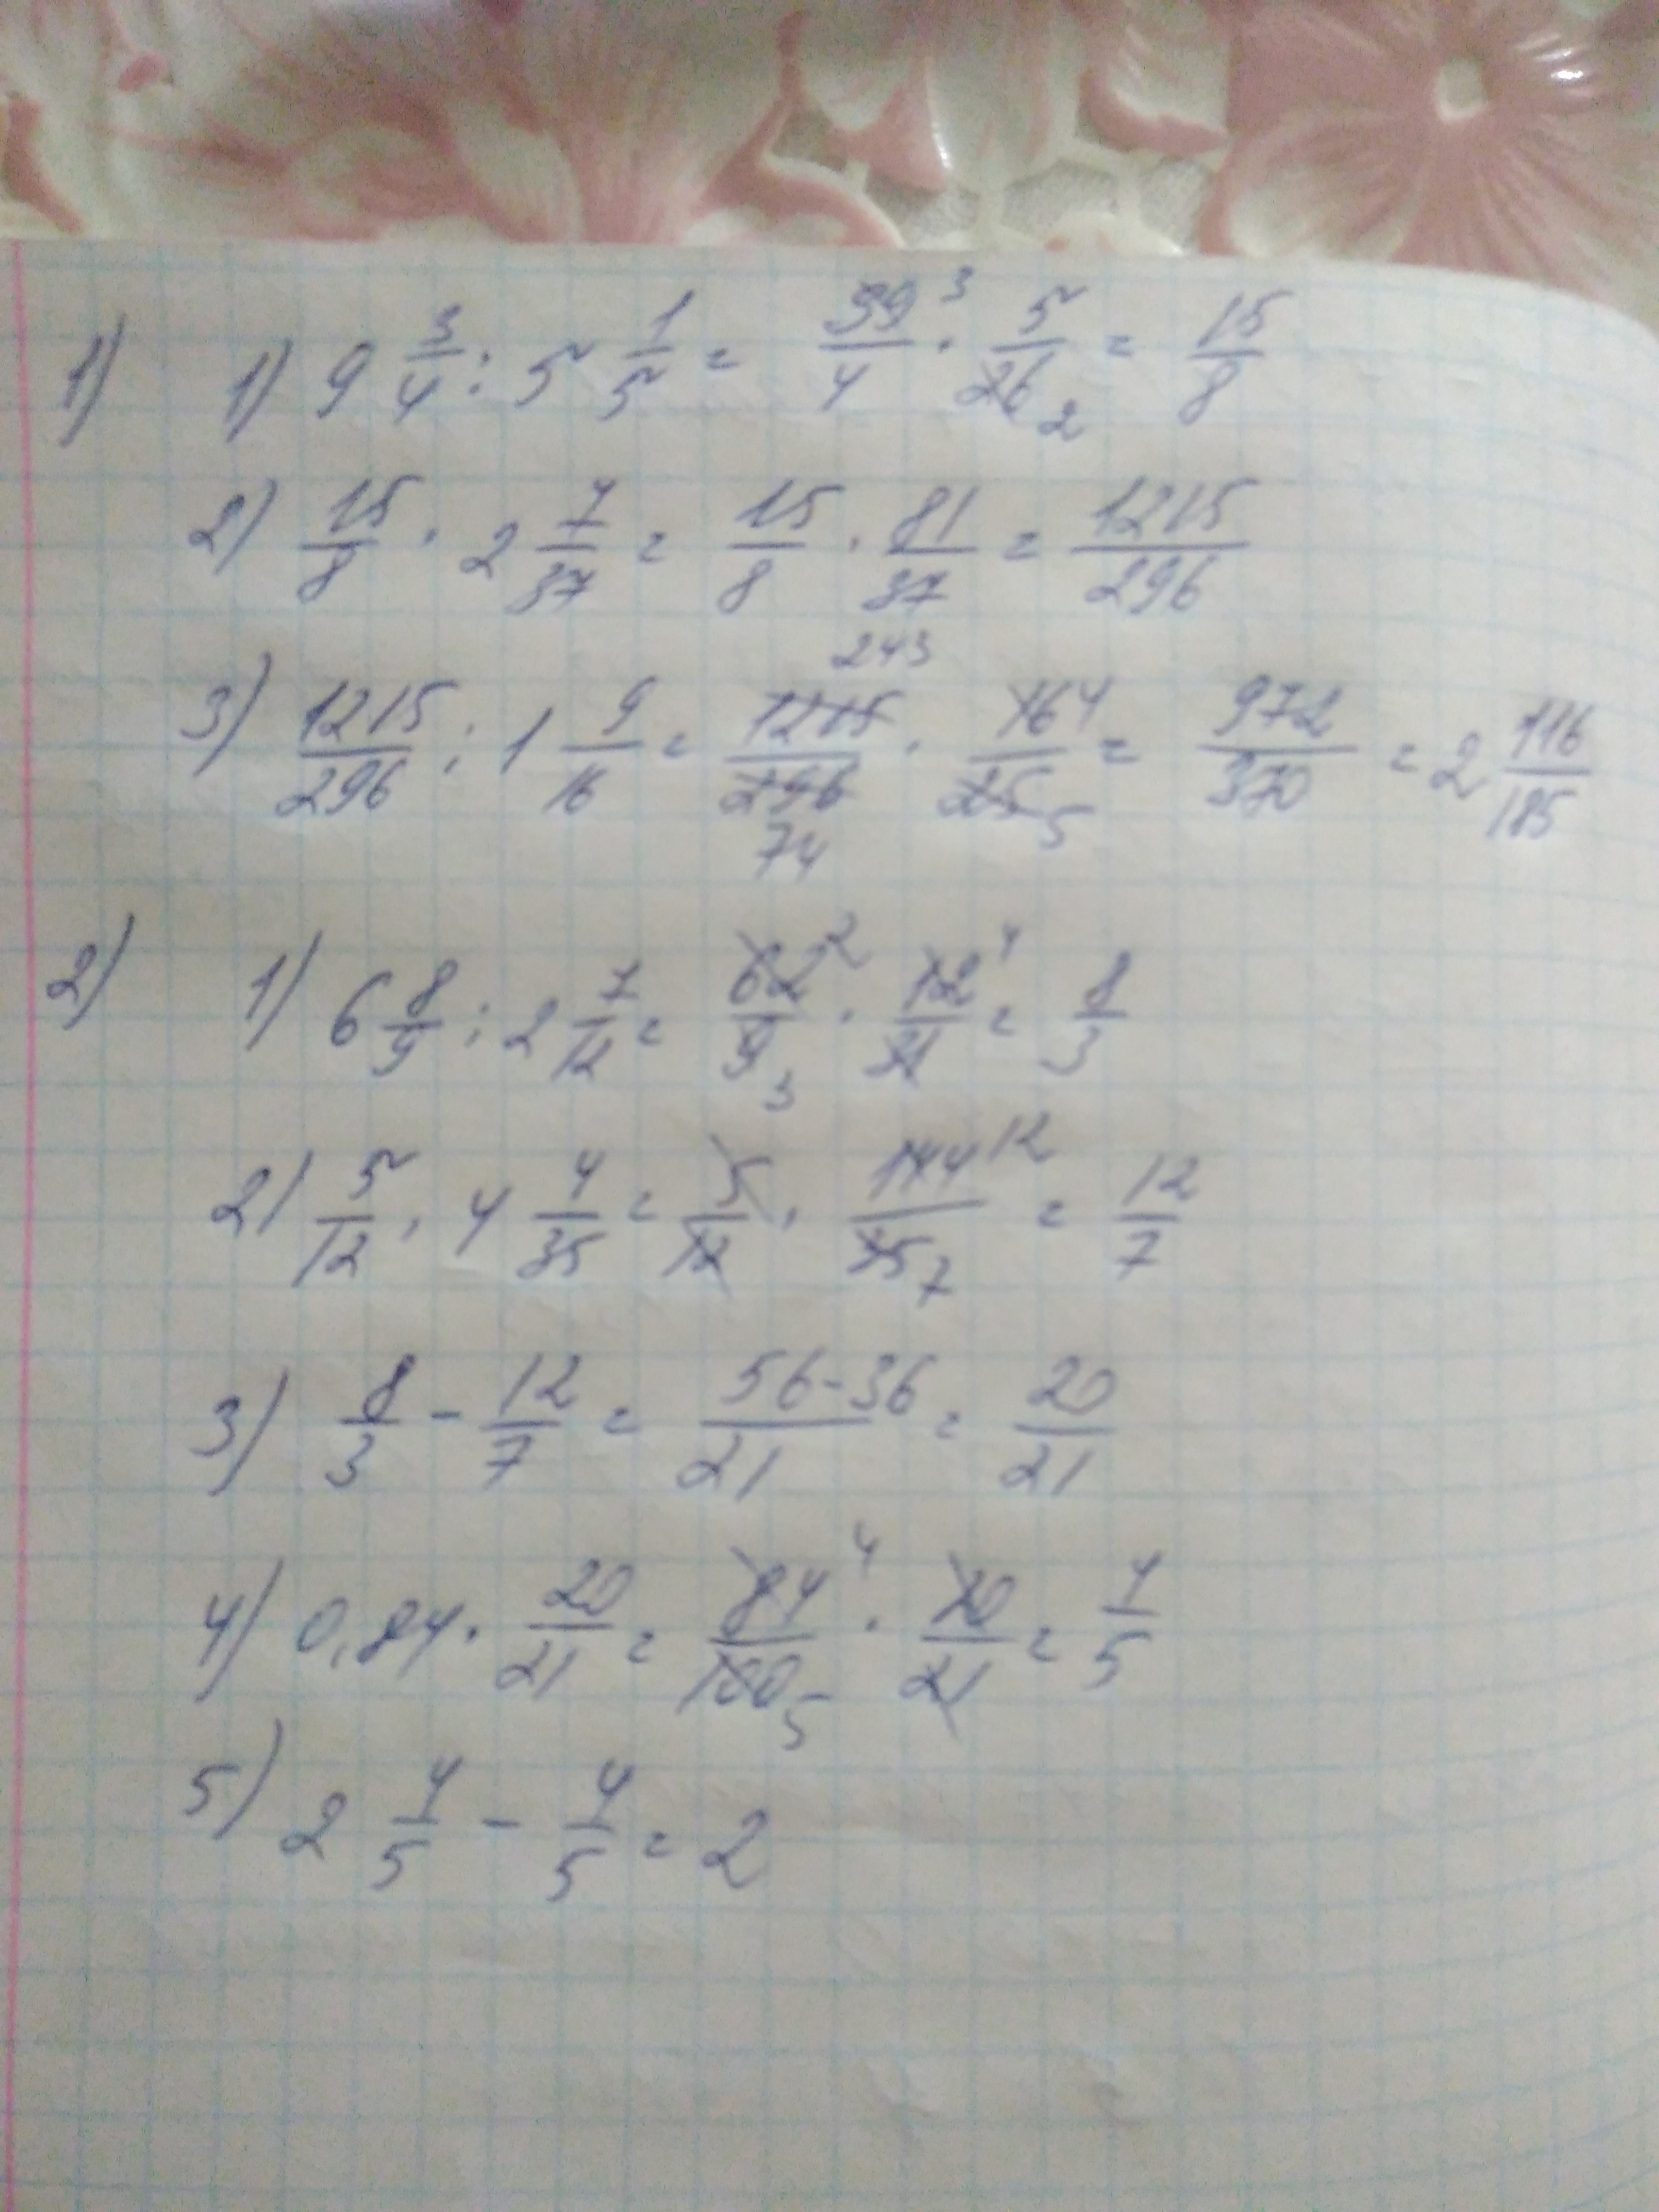 1) 1) 9 3/4 : 5 1/5 = 39/4 3 · 5/26 2 = 15/8
2) 15/8 · 2 7/37 = 15/8 · 81/37 = 1215/296
3) 1215/296 : 1 9/16 = 1215/296 243 74 · 16/25 4 5 = 972/370 = 2 116/185
2) 1) 6 8/9 : 2 7/12 = 62/9 2 3 · 12/31 4 = 8/3
2) 5/12 · 4 4/35 = 5/12 · 144/35 12 7 = 12/7
3) 8/3 - 12/7 = 56-36/21 = 20/21
4) 0,84 · 20/21 = 84/100 4 5 · 20/21 = 4/5
5) 2 4/5 - 4/5 = 2